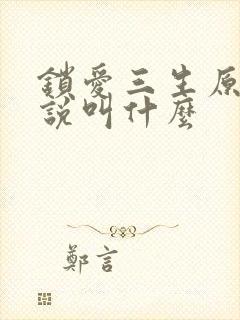 鎖愛三生原
說叫什麼
鄭言